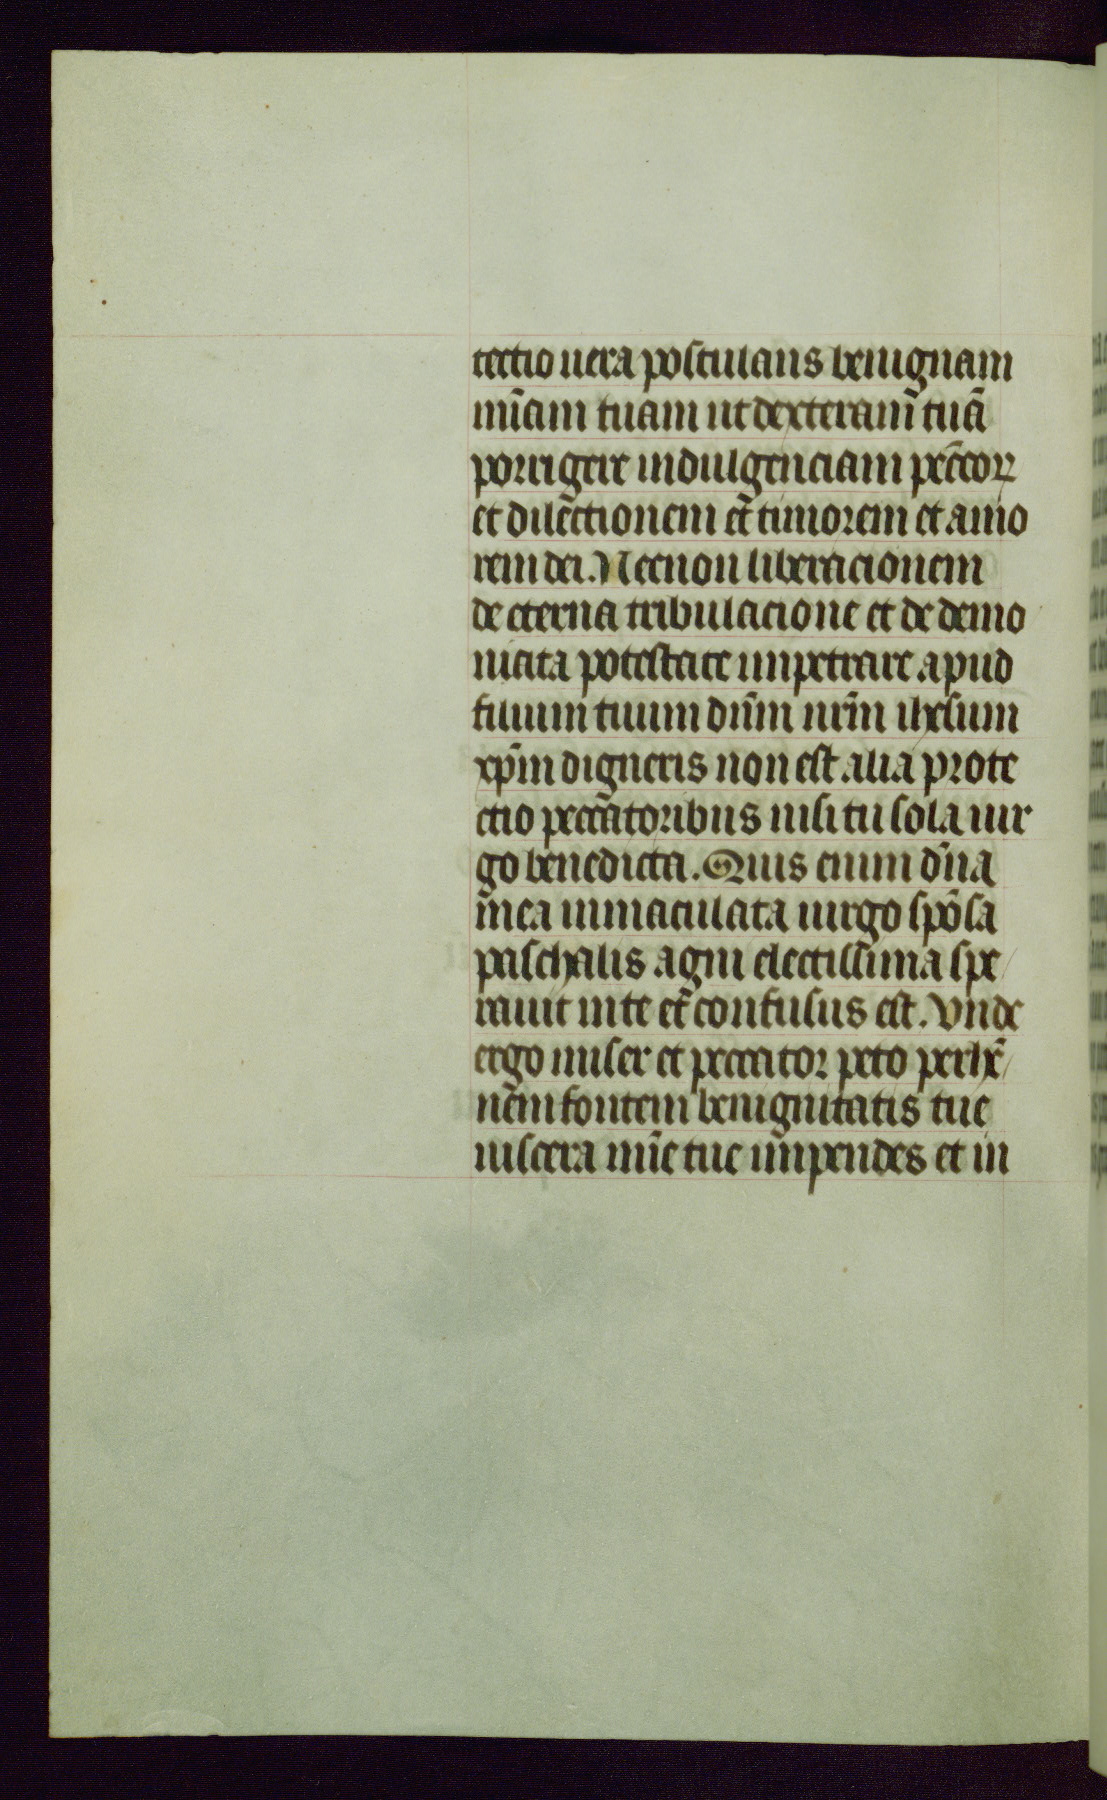 tectio uera postulans benignam
mi̅am tuam ut dexteram̅ tuā
porrigere indulgenciam pecc̅toꝝ
et dilec̅tionem et̅ timorem et amo
rem dei. Necnon liberacionem
de eterna tribulacione et de demo
niaca potestate impetrare apud
filium tuum dn̅m nr̅m ihesum
xp̅m digneris non est alia prote
ctio pecca̅toribus nisi tu sola uir
go benedicta. Quis enim dn̅a
mea immaculata uirgo spo̅sa
paschalis agni electissima spe
rauit in te et̅ confusus est. Vnde
ergo miser et peccator peto perhe̅
ne̅m fontem benignitatis tue
uiscera mi̅e tue impendes et in